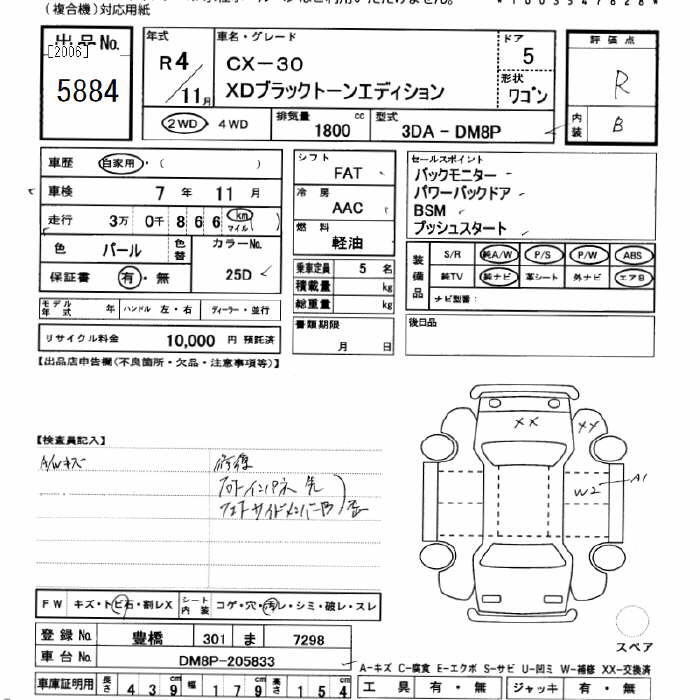 (複合機)対応用紙
出品No.
[2006]
5884
年式
R4/11月
車名・グレード
CX-30
XDブラックトーンエディション
ドア
5
形状
ワゴン
2WD ・ 4WD
排気量
1800 cc
型式
3DA - DM8P
評価点
R
内装
B
車歴 自家用・( )
車検 7 年 11 月
走行 3万 0千 8 6 6 km マイル ( )
色 パール
色替
カラーNo.
25D
保証書 有・無
モデル年式 年
ハンドル 左・右
ディーラー・並行
リサイクル料金 10,000 円 預託済
シフト
FAT
冷房
AAC
燃料
軽油
乗車定員 5 名
積載量 kg
総重量 kg
書類期限
月 日
セールスポイント
バックモニター
パワーバックドア
BSM
プッシュスタート
装備品
S/R 純A/W P/S P/W ABS
純TV 純ナビ 革シート 外ナビ エアB
ナビ型番:
後日品
【出品店申告欄(不良箇所・欠品・注意事項等)】
【検査員記入】
A/Wキズ
修復
フロントインパネ 先
XX
XX
W2
A1
FW キズ・トビ石・割レX
シート内装 コゲ・穴・汚レ・シミ・破レ・スレ
登録No. 豊橋 301 ま 7298
車台No. DM8P-205833
車庫証明用 長さ 4 3 9 cm 幅 1 7 9 cm 高さ 1 5 4 cm
スペア
A-キズ C-腐食 E-エクボ S-サビ U-凹ミ W-補修 XX-交換済
工具 有・無 ジャッキ 有・無